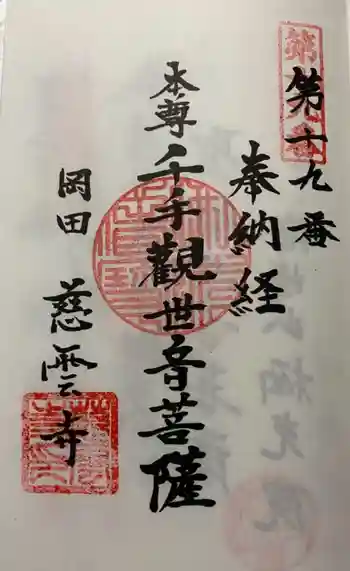 第十九番
奉納経
本尊千手観世音菩薩
岡田 慈雲寺